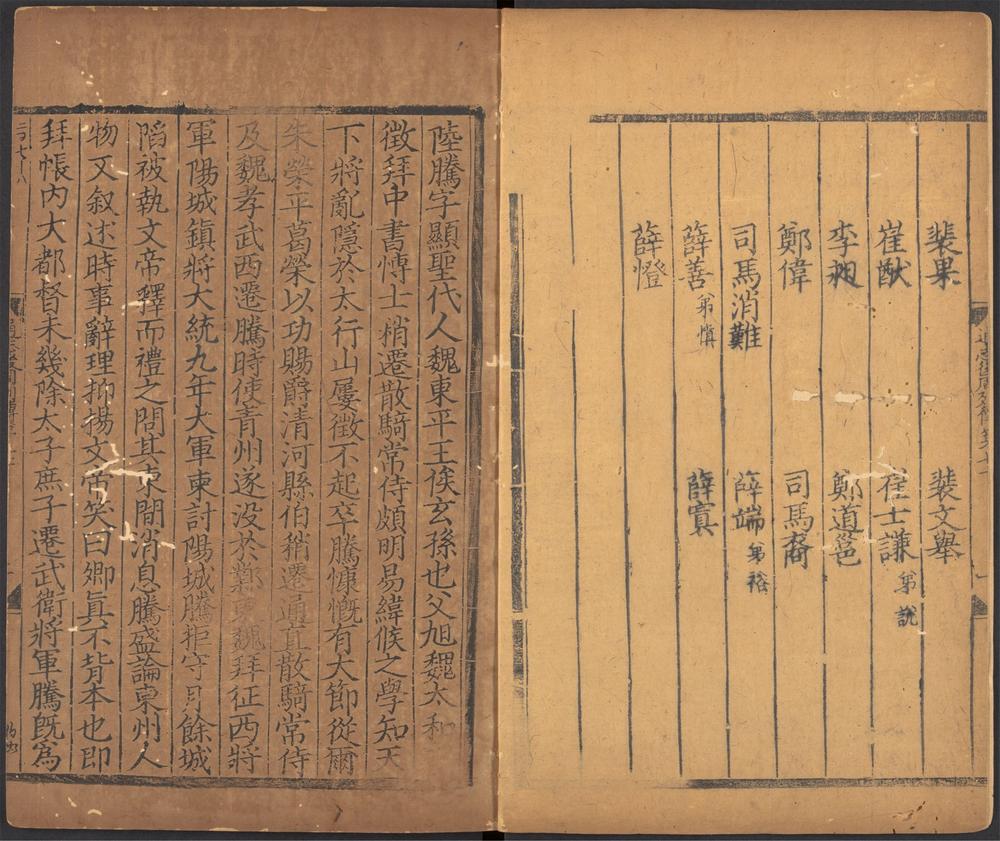 裴果 裴文舉
崔猷 崔士謙 弟說
李昶 鄭道邕
鄭偉 司馬裔
司馬消難 薛端 弟裕
薛善 弟慎 薛寘
薛憕
陸騰字顯聖代人魏東平王俟玄孫也父旭魏太和
徵拜中書愽士稍遷散騎常侍頗明易緯候之學知天
下將亂隱於太行山屢徵不起卒騰慷慨有大節從爾
朱榮平葛榮以功賜爵清河縣伯稍遷通直散騎常侍
及魏孝武西遷騰時使青州遂没於鄴東魏拜征西將
軍陽城鎮將大統九年大軍東討陽城騰拒守月餘城
陷被執文帝釋而禮之問其東間消息騰盛論東州人
物又叙述時事辭理抑揚文帝笑曰卿真不背本也即
拜帳内大都督未幾除太子庶子遷武衛將軍騰既為